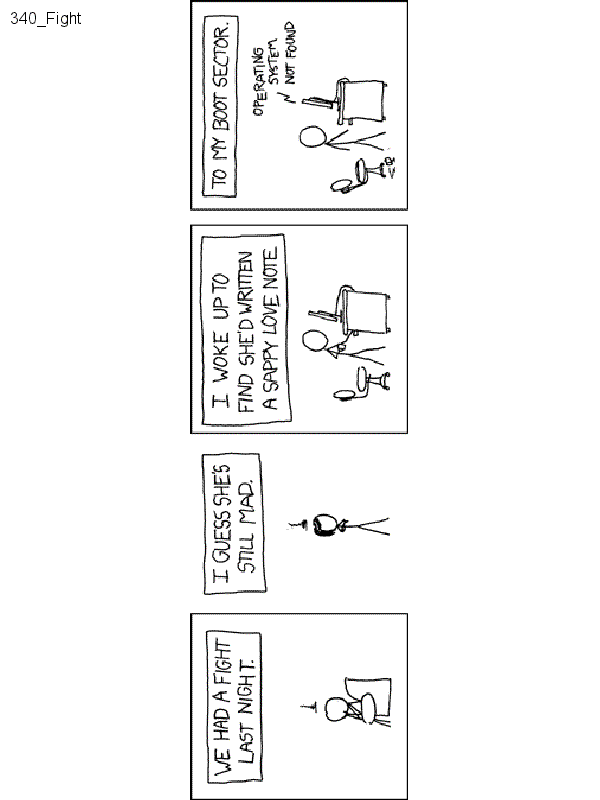 340_Fight
WE HAD A FIGHT
LAST NIGHT.
I GUESS SHE'S
STILL MAD.
I WOKE UP TO
FIND SHE'D WRITTEN
A SAPPY LOVE NOTE
TO MY BOOT SECTOR.
OPERATING
SYSTEM
NOT FOUND